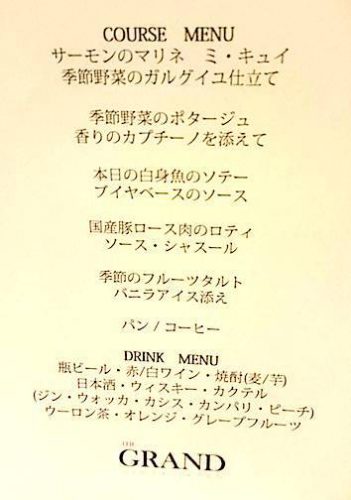 COURSE MENU
サーモンのマリネ ミ・キュイ
季節野菜のガルグイユ仕立て
季節野菜のポタージュ
香りのカプチーノを添えて
本日の白身魚のソテー
ブイヤベースのソース
国産豚ロース肉のロティ
ソース・シャスール
季節のフルーツタルト
バニラアイス添え
パン / コーヒー
DRINK MENU
瓶ビール・赤/白ワイン・焼酎(麦/芋)
日本酒・ウィスキー・カクテル
(ジン・ウォッカ・カシス・カンパリ・ピーチ)
ウーロン茶・オレンジ・グレープフルーツ
GRAND